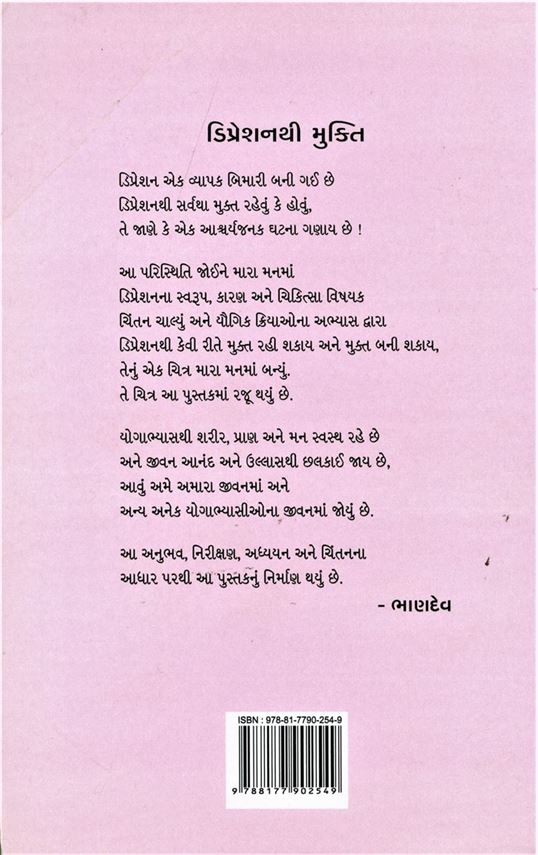 ડિપ્રેશનથી મુક્તિ
ડિપ્રેશન એક વ્યાપક બિમારી બની ગઈ છે
ડિપ્રેશનથી સર્વથા મુક્ત રહેવું કે હોવું,
તે જાણે કે એક આશ્ચર્યજનક ઘટના ગણાય છે !
આ પરિસ્થિતિ જોઈને મારા મનમાં
ડિપ્રેશનના સ્વરૂપ, કારણ અને ચિકિત્સા વિષયક
ચિંતન ચાલ્યું અને યૌગિક ક્રિયાઓના અભ્યાસ દ્વારા
ડિપ્રેશનથી કેવી રીતે મુક્ત રહી શકાય અને મુક્ત બની શકાય,
તેનું એક ચિત્ર મારા મનમાં બન્યું.
તે ચિત્ર આ પુસ્તકમાં રજૂ થયું છે.
યોગાભ્યાસથી શરીર, પ્રાણ અને મન સ્વસ્થ રહે છે
અને જીવન આનંદ અને ઉલ્લાસથી છલકાઈ જાય છે,
આવું અમે અમારા જીવનમાં અને
અન્ય અનેક યોગાભ્યાસીઓના જીવનમાં જોયું છે.
આ અનુભવ, નિરીક્ષણ, અધ્યયન અને ચિંતનના
આધાર પરથી આ પુસ્તકનું નિર્માણ થયું છે.
- ભાણદેવ
ISBN : 978-81-7790-254-9
9 788177 902549